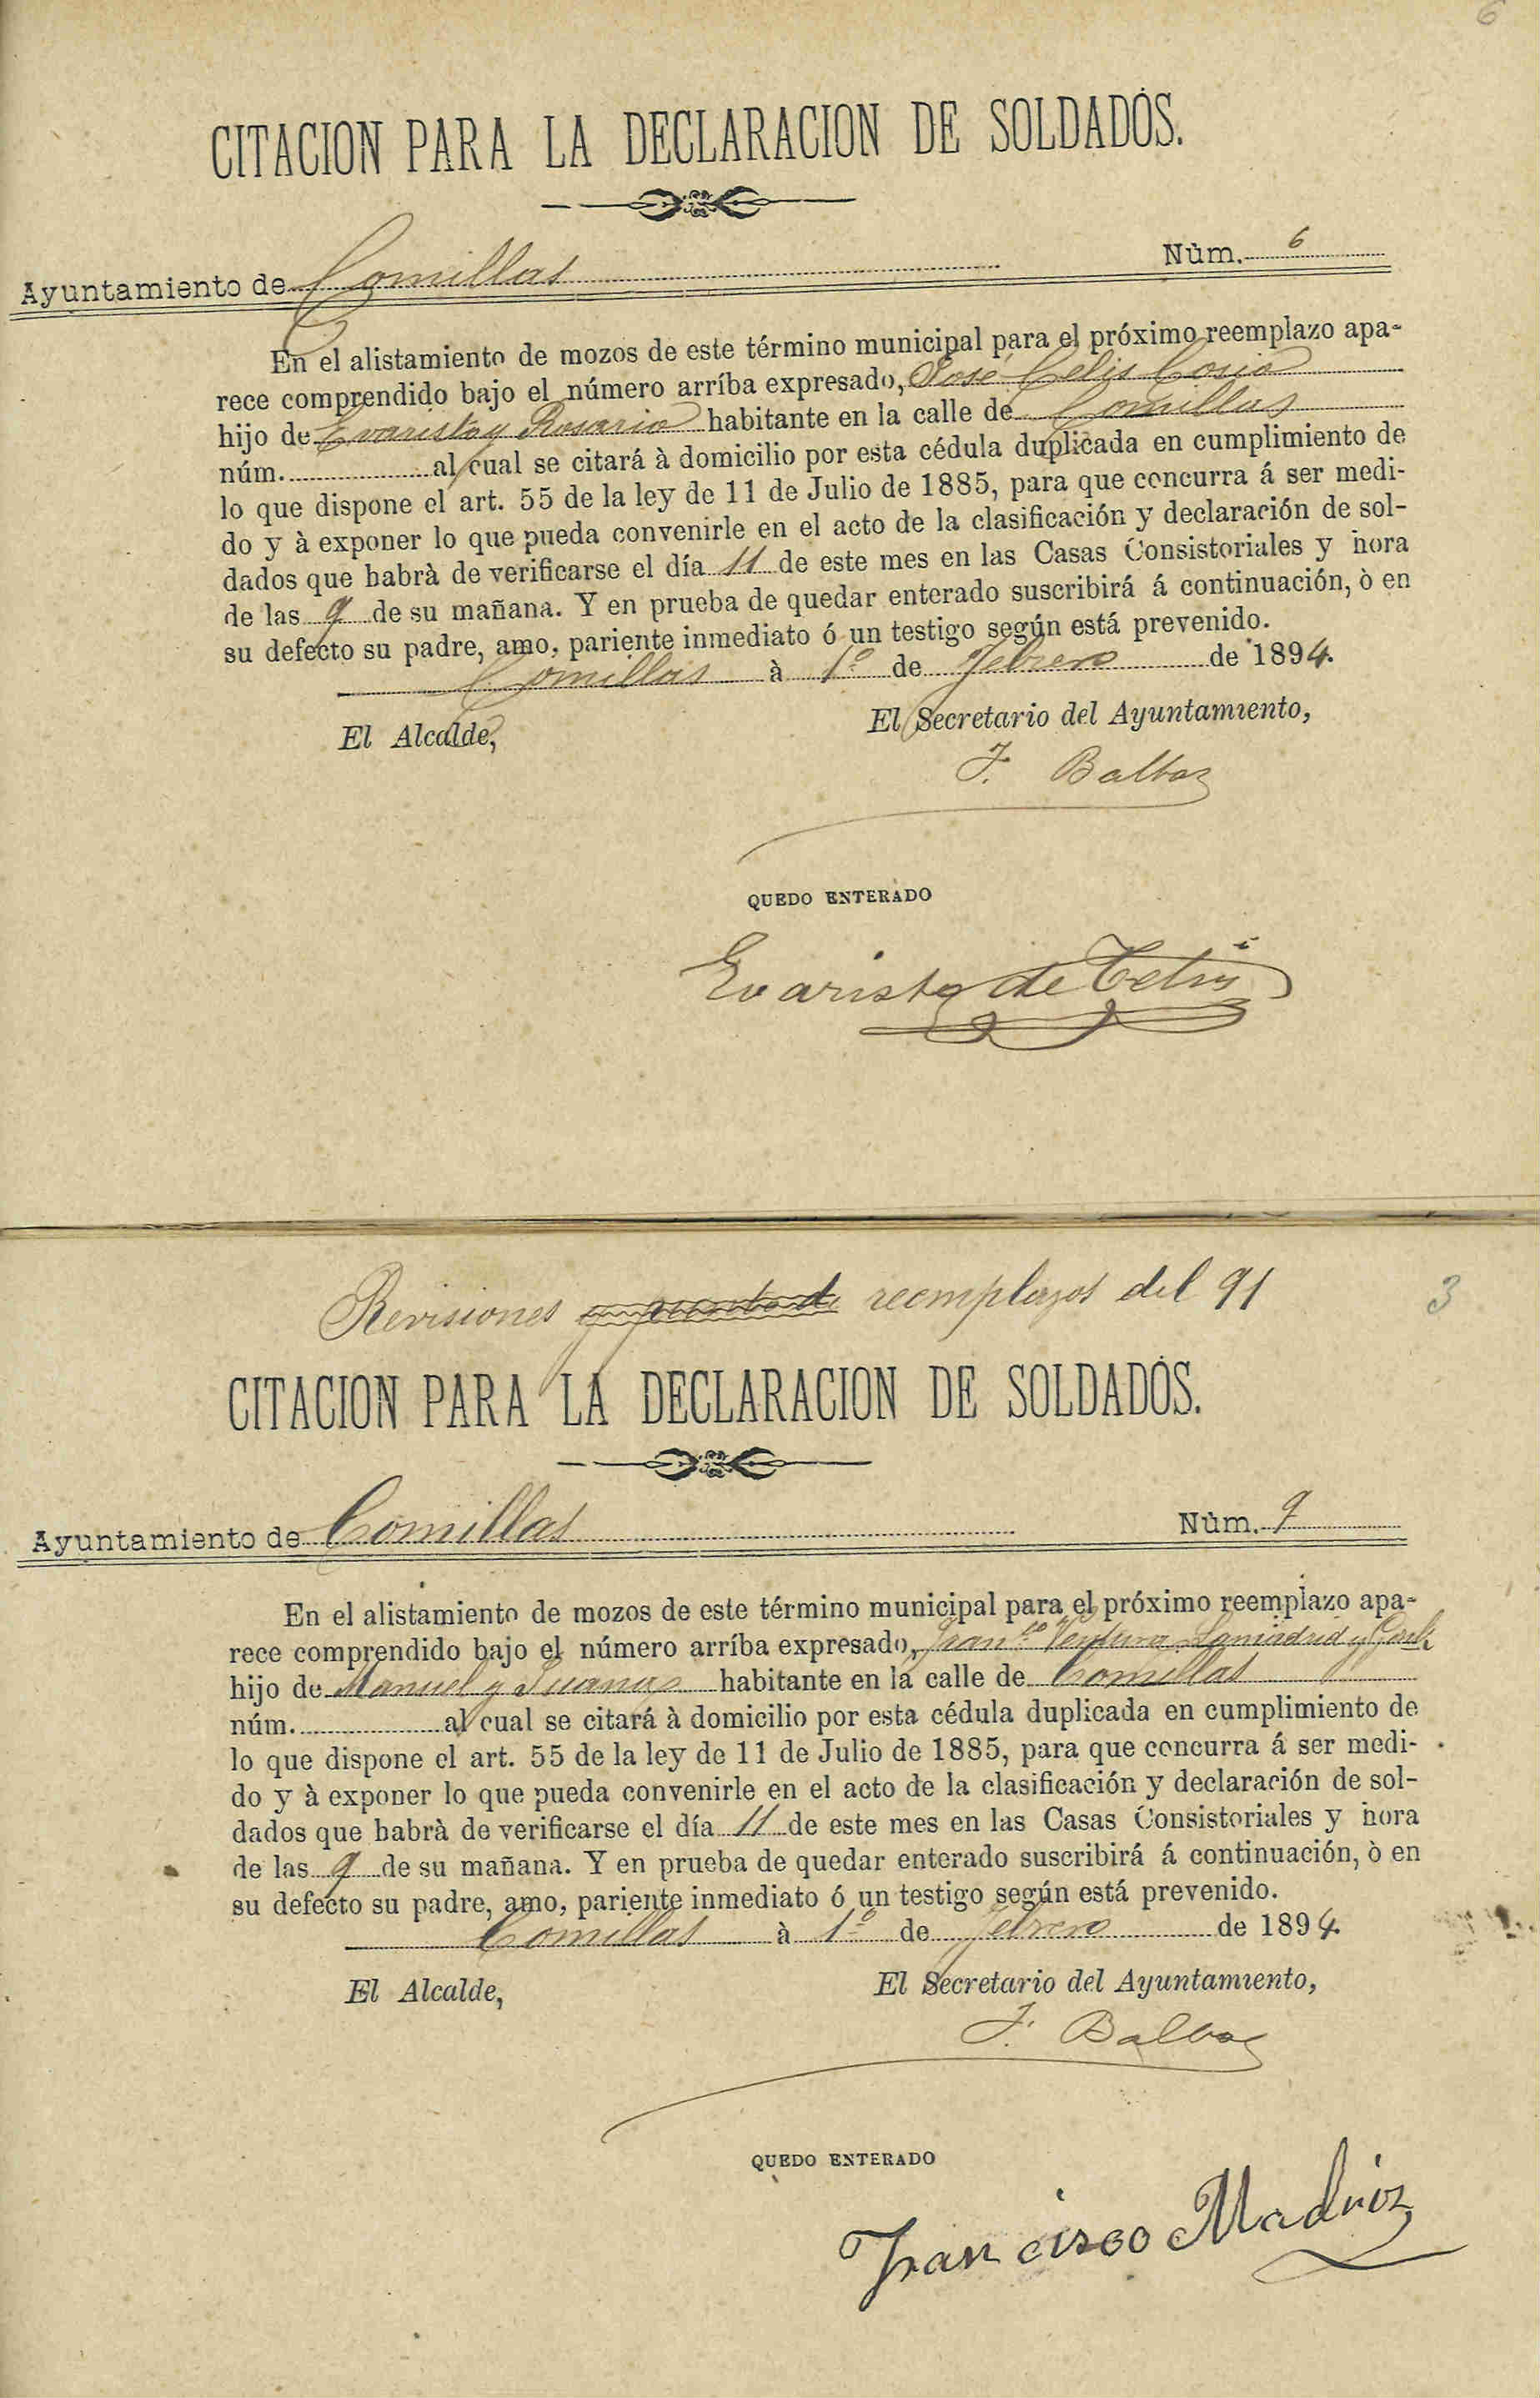 6
CITACION PARA LA DECLARACION DE SOLDADOS.
Ayuntamiento de Comillas Nùm. 6
En el alistamiento de mozos de este término municipal para el próximo reemplazo apa-
rece comprendido bajo el número arríba expresado, José Celis Cosio
hijo de Evaristo y Rosario habitante en la calle de Comillas
núm. al cual se citará à domicilio por esta cédula duplicada en cumplimiento de
lo que dispone el art. 55 de la ley de 11 de Julio de 1885, para que concurra á ser medi-
do y à exponer lo que pueda convenirle en el acto de la clasificación y declaración de sol-
dados que habrà de verificarse el día 11 de este mes en las Casas Consistoriales y hora
de las 9 de su mañana. Y en prueba de quedar enterado suscribirá á continuación, ò en
su defecto su padre, amo, pariente inmediato ó un testigo según está prevenido.
Comillas à 1º de Febrero de 1894.
El Alcalde, El Secretario del Ayuntamiento,
F. Balbas
QUEDO ENTERADO
Evaristo de Celis
Revisiones reemplazos del 91 3
CITACION PARA LA DECLARACION DE SOLDADOS.
Ayuntamiento de Comillas Nùm. 9
En el alistamiento de mozos de este término municipal para el próximo reemplazo apa-
rece comprendido bajo el número arríba expresado, Franco Ventura Lamadrid y
hijo de Manuel y Juana habitante en la calle de Comillas
núm. al cual se citará à domicilio por esta cédula duplicada en cumplimiento de
lo que dispone el art. 55 de la ley de 11 de Julio de 1885, para que concurra á ser medi-
do y à exponer lo que pueda convenirle en el acto de la clasificación y declaración de sol-
dados que habrà de verificarse el día 11 de este mes en las Casas Consistoriales y hora
de las 9 de su mañana. Y en prueba de quedar enterado suscribirá á continuación, ò en
su defecto su padre, amo, pariente inmediato ó un testigo según está prevenido.
Comillas à 1º de Febrero de 1894.
El Alcalde, El Secretario del Ayuntamiento,
F. Balbas
QUEDO ENTERADO
Francisco Madriz